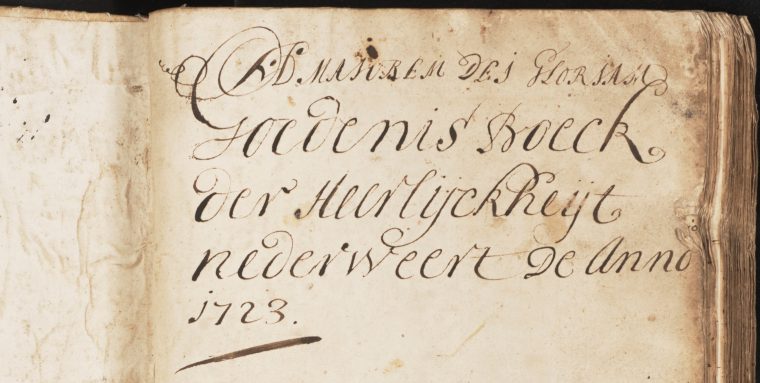 AD MAJOREM DEI GLORIAM
Goedenis Boeck
der Heerlijckheijt
nederweert De Anno
1723.